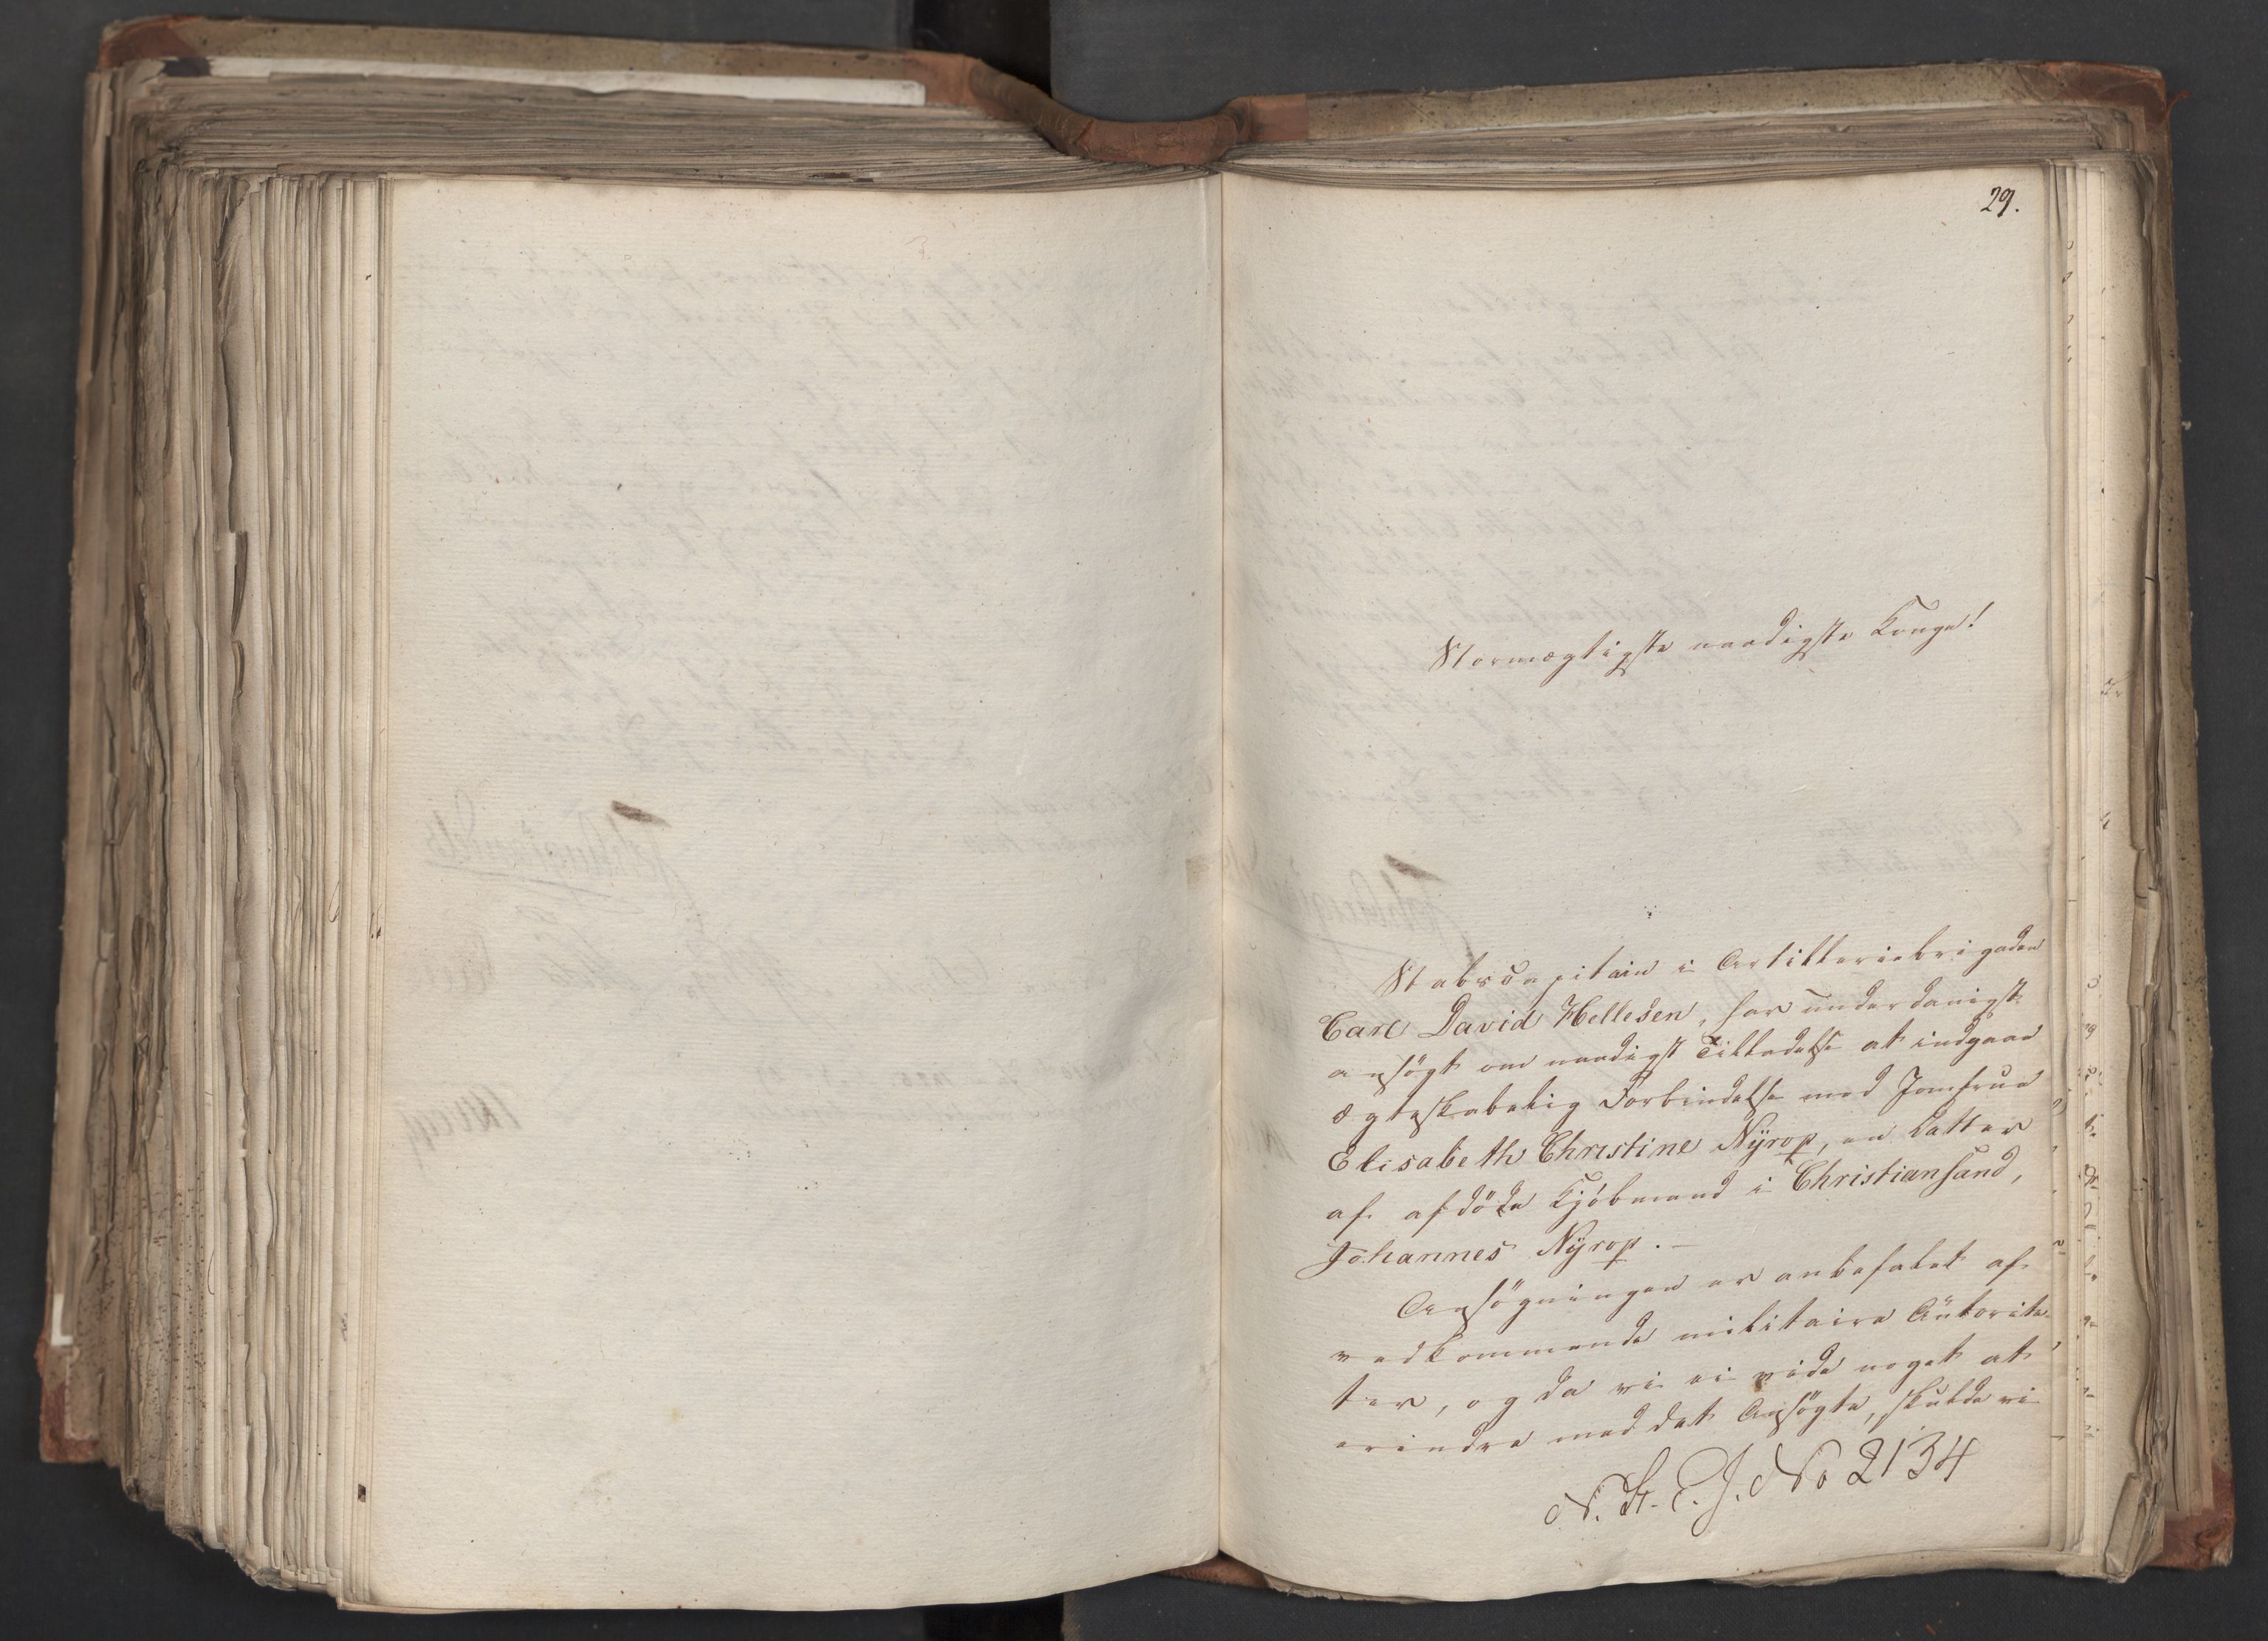 29.
Stormægtigste naadigste Konge!
Stabscapitain i Artilleriebrigaden
Carl David Hellesen, har underdanigst
ansögt om naadigst Tilladelse at indgaae
ægteskabelig Forbindelse med Jomfrue
Elisabeth Christine Nÿrop, en Datter
af afdöde Kjöbmand i Christiansand,
Johannes Nÿrop. —
Ansögningen er anbefalet af
vedkommende militaire Autorite-
ter, og da vi ei vide noget at
erindre mod det Ansögte, skulde vi
N. St. E. J. No 2134